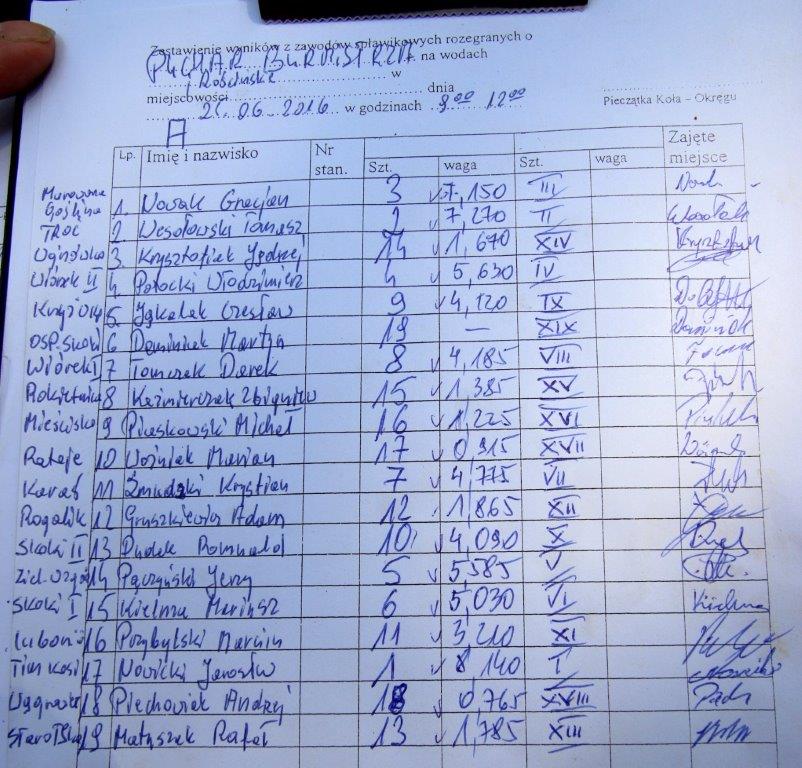 Zestawienie wyników z zawodów spławikowych rozegranych o
PUCHAR BURMISTRZA na wodach
J Rościńskie w
miejscowości dnia
w godzinach 9 00 12 00
Pieczątka Koła – Okręgu
A
Lp. Imię i nazwisko Nr stan. Szt. waga Szt. waga Zajęte miejsce
Murowana Goślina 1. Nowak Gracjan 3 7,150 III
TROC 2 Wesołowski Tomasz 2 7,270 II
3 Krysztofiak Jędrzej 14 1,670 XIV
Wiórek II 4 Potocki Włodzimierz 4 5,630 IV
5 Czesław 9 4,120 IX
OSP. Skoki 6 Dominiak Martyn 19 — XIX
Wiórek I 7 Tomczak Darek 8 4,185 VIII
Rokietnica 8 Kaźmierczak Zbigniew 15 1,385 XV
Mieścisko 9 Piaskowski Michał 16 1,225 XVI
Rataje 10 Woźniak Marian 17 0,915 XVII
Karaś 11 Żmudzki Krystian 7 4,775 VII
Rogalik 12 Gruszkiewicz Adam 12 1,865 XII
Skoki II 13 Dudek Romuald 10 4,090 X
14 Pączyński Jerzy 5 5,585 V
Skoki I 15 Kielma Mariusz 6 5,030 VI
Luboń 16 Przybylski Marcin 11 3,210 XI
17 Nowicki Jarosław 1 8,140 I
18 Piechowiak Andrzej 18 0,765 XVIII
19 Matuszak Rafał 13 1,785 XIII